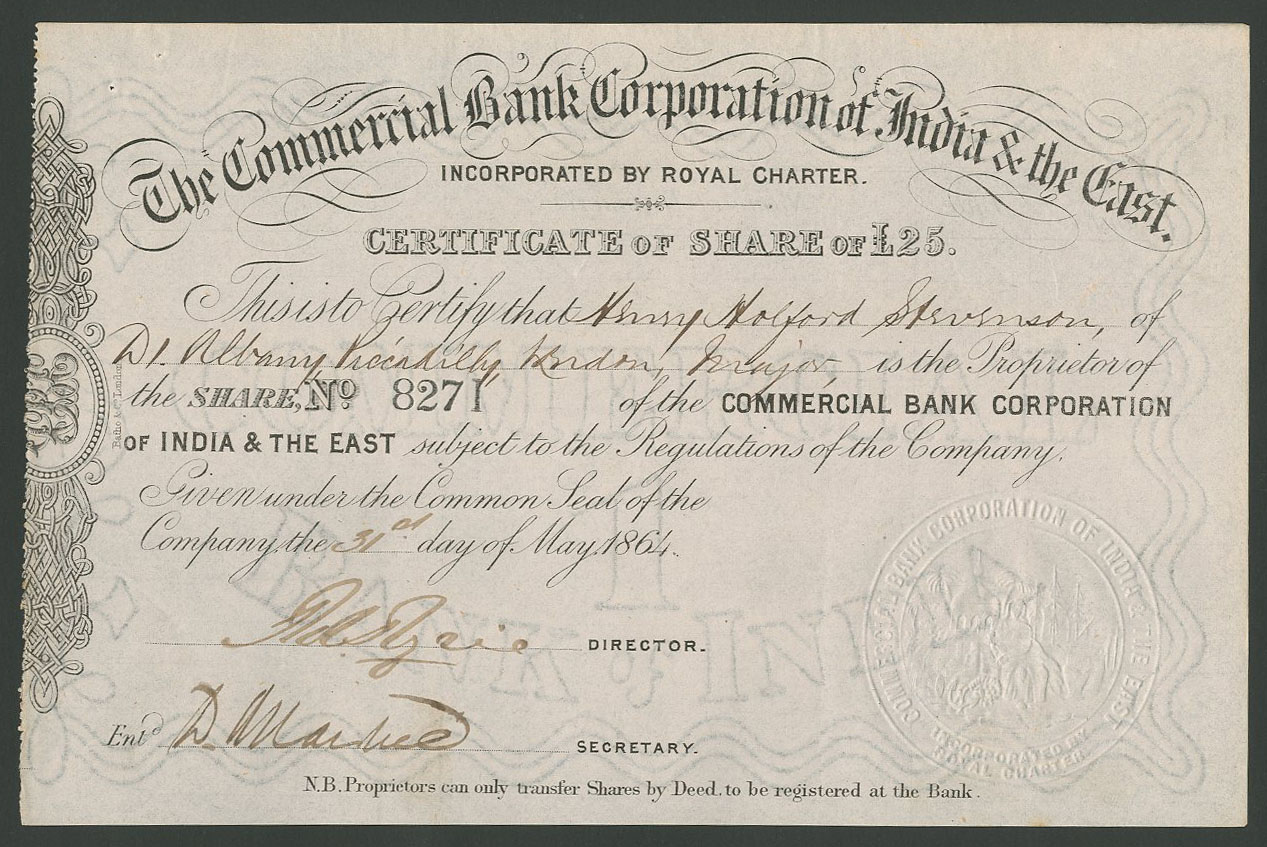 The Commercial Bank Corporation of India & the East.
INCORPORATED BY ROYAL CHARTER.
CERTIFICATE OF SHARE OF £25.
This is to Certify that Henry Holford Stevenson, of
D1. Albany Piccadilly London, Major, is the Proprietor of
the SHARE, No 8271 of the COMMERCIAL BANK CORPORATION
OF INDIA & THE EAST subject to the Regulations of the Company.
Given under the Common Seal of the
Company, the 31st day of May 1864.
DIRECTOR.
Entd D. SECRETARY.
N.B. Proprietors can only transfer Shares by Deed, to be registered at the Bank.
COMMERCIAL BANK CORPORATION OF INDIA & THE EAST
INCORPORATED BY
ROYAL CHARTER
COMMERCIAL
1
BANK of IND